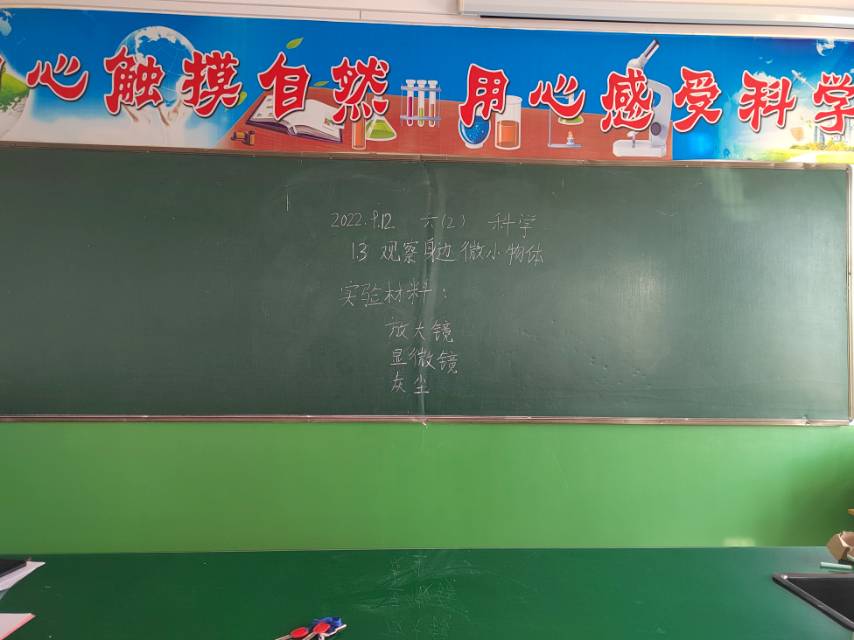 心触摸自然 用心感受科学
2022.9.12 六(2) 科学
1.3 观察身边微小物体
实验材料:
放大镜
显微镜
灰尘